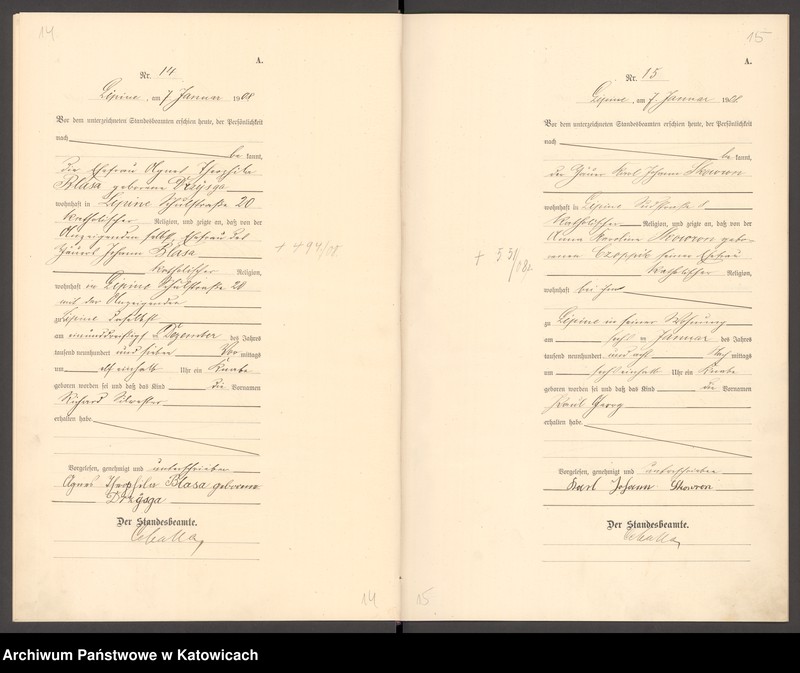 14
A.
Nr. 14
Lipine, am 7 Januar 1908
Vor dem unterzeichneten Standesbeamten erschien heute, der Persönlichkeit
nach
be kannt,
die Ehefrau Agnes Theophila
Blasa geborene Drzysga
wohnhaft in Lipine Schulstraße 20
katholischer Religion, und zeigte an, daß von der
Anzeigenden selbst, Ehefrau des
Johann Blasa
katholischer Religion,
wohnhaft in Lipine Schulstraße 20
mit der Anzeigenden
zu Lipine daselbst
am einunddreißigsten Dezember des Jahres
tausend neunhundert und sieben Vor mittags
um elf einhalb Uhr ein Knabe
geboren worden sei und daß das Kind die Vornamen
Richard Silvester
erhalten habe
Vorgelesen, genehmigt und unterschrieben
Agnes Theophila Blasa geborene
Drzysga
Der Standesbeamte.
+ 494/08
14
15
A.
Nr. 15
Lipine, am 7. Januar 1908
Vor dem unterzeichneten Standesbeamten erschien heute, der Persönlichkeit
nach
be kannt,
der Karl Johann Skowron
wohnhaft in Lipine Südstraße 1
katholischer Religion, und zeigte an, daß von der
Anna Karoline Skowron gebo-
renen seiner Ehefrau
katholischer Religion,
wohnhaft bei ihm
zu Lipine in seiner Wohnung
am Januar des Jahres
tausend neunhundert und acht Nach mittags
um einhalb Uhr ein Knabe
geboren worden sei und daß das Kind die Vornamen
Paul Georg
erhalten habe.
Vorgelesen, genehmigt und unterschrieben
Karl Johann Skowron
Der Standesbeamte.
15
Archiwum Państwowe w Katowicach